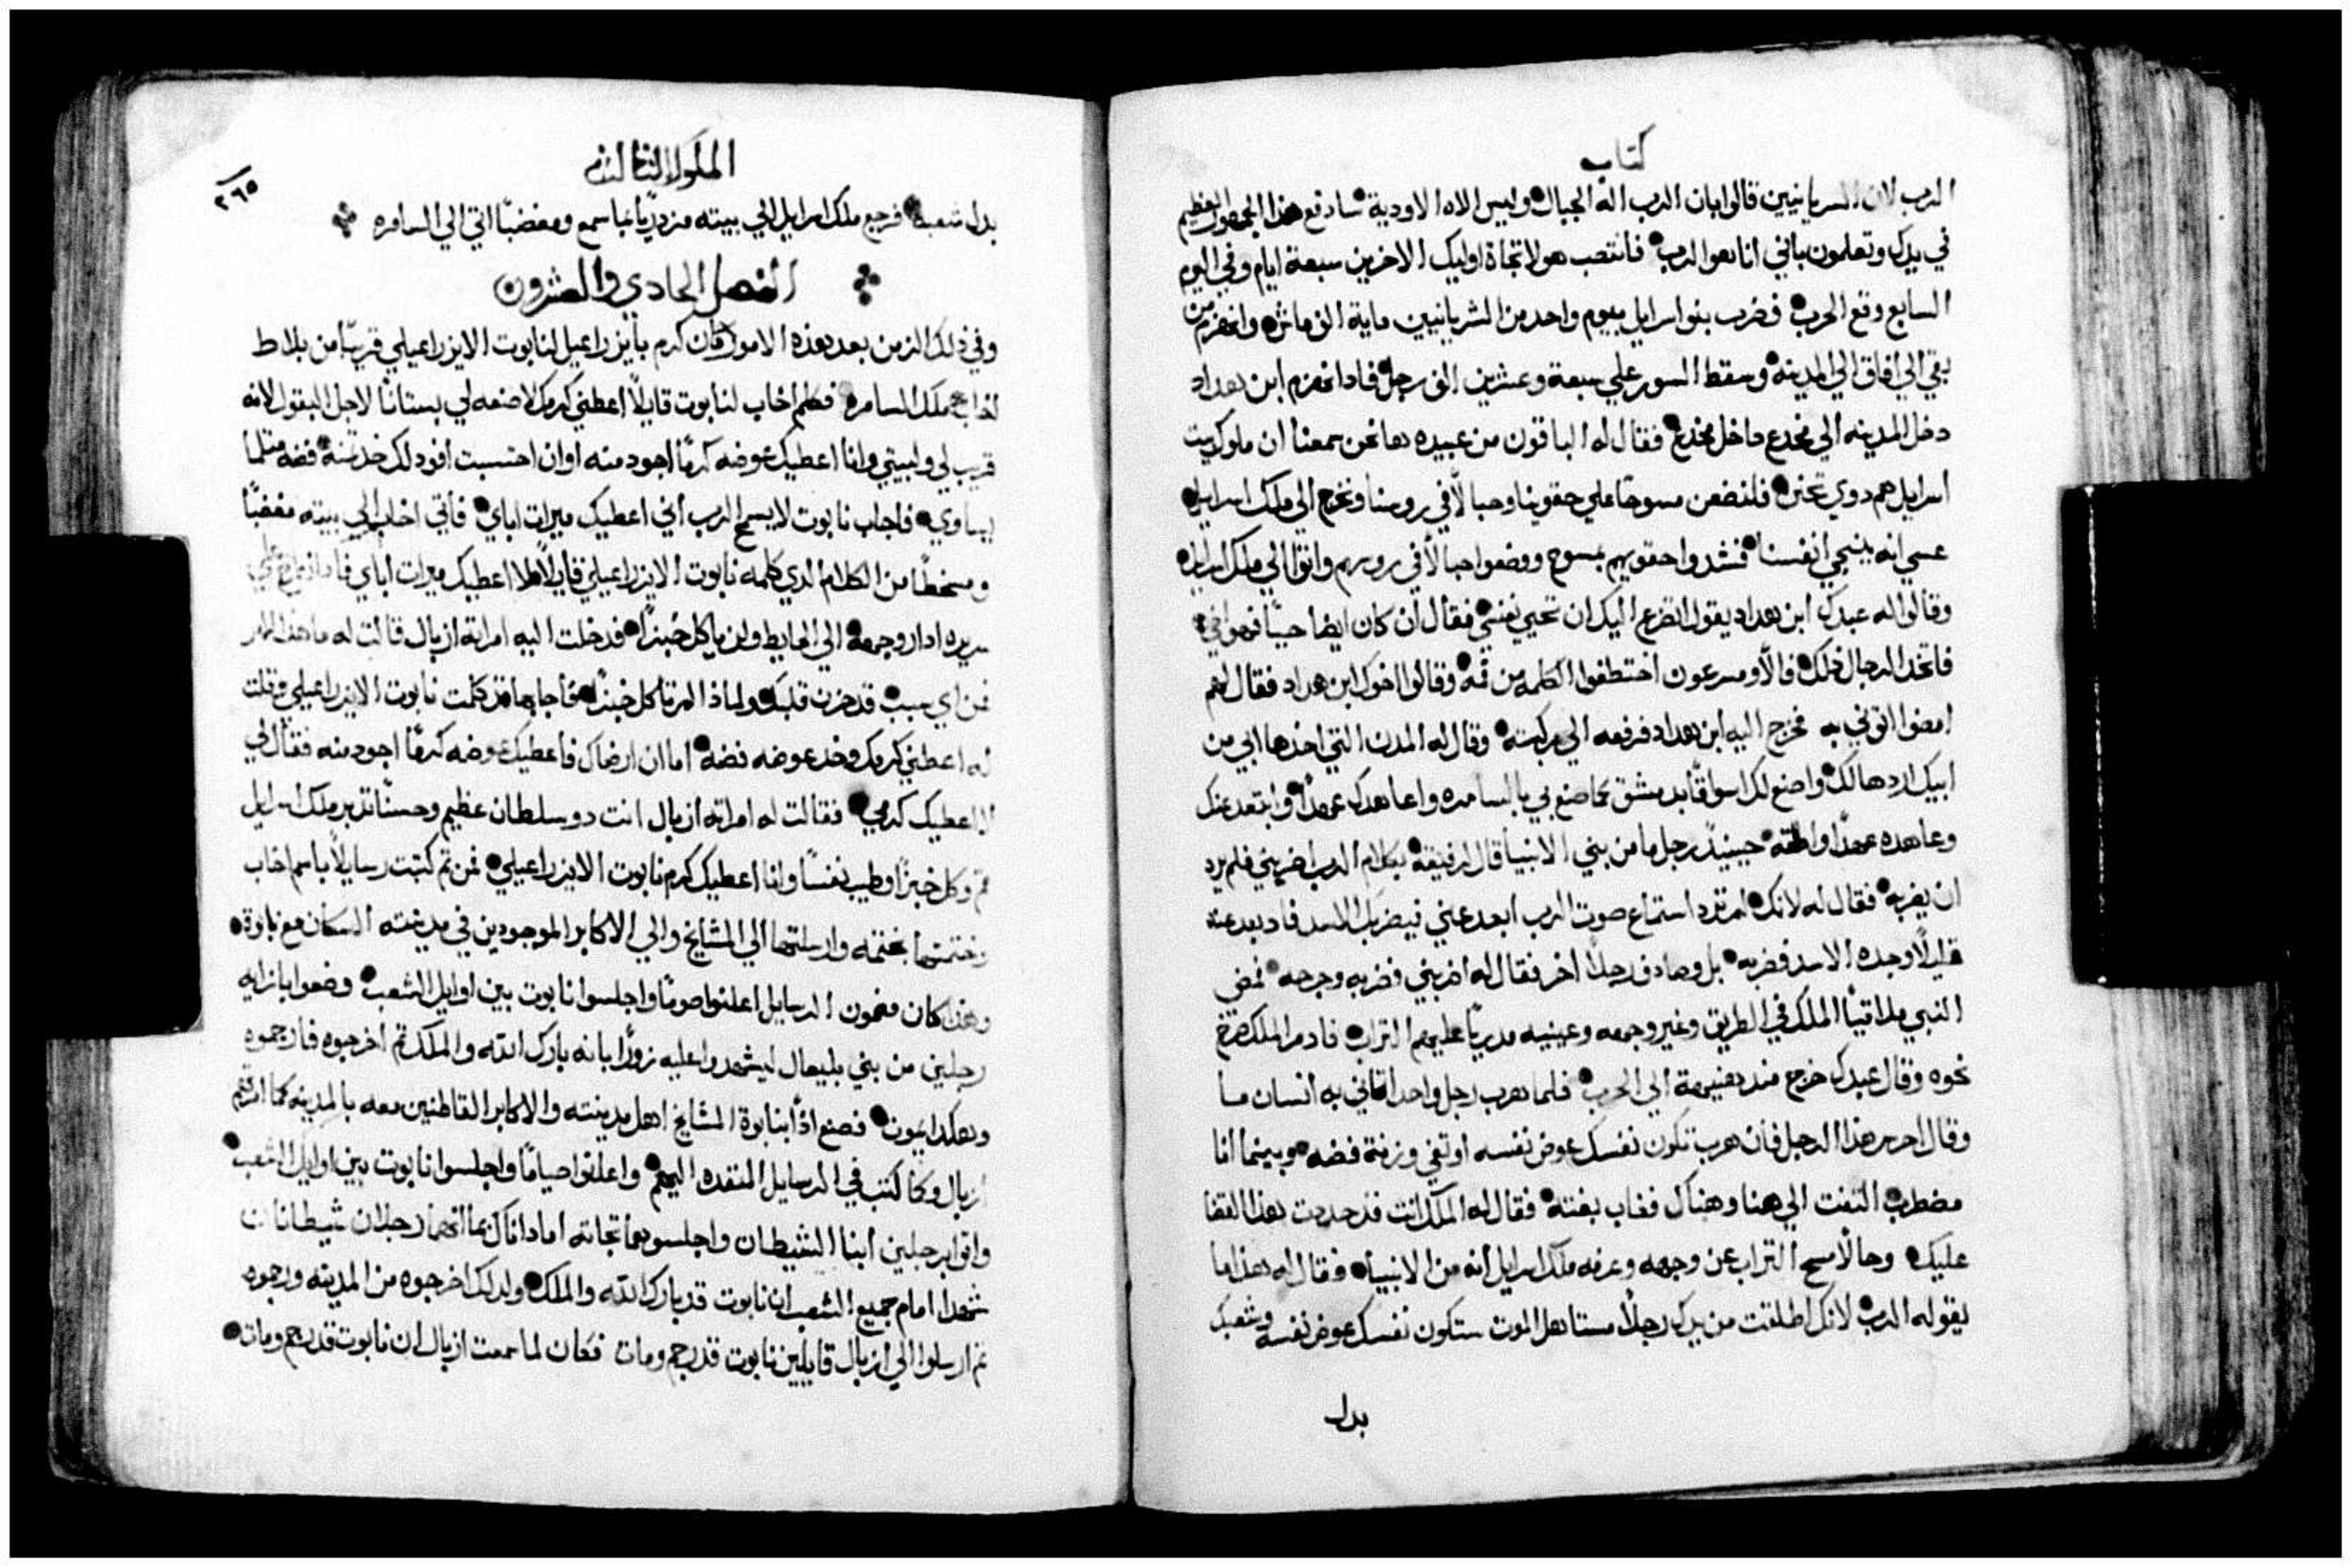 كتاب
الرب لان السريانيين قالوا بان الرب اله الجبال وليس الاه الاودية سادفع هذا الجمهور العظيم
في يدك وتعلمون باني انا هو الرب فانتصب هولا تجاة اوليك الاخرين سبعة ايام وفي اليوم
السابع وقع الحرب فضرب بنو اسرايل بيوم واحد من السريانيين ماية الف ماش وانهزم من
بقي الي افاق الي المدينه وسقط السور علي سبعة وعشرين الف رجل فاذا انهزم ابن هداد
دخل المدينه الي مخدع داخل مخدع فقال له الباقون من عبيده ها نحن سمعنا ان ملوك بيت
اسرايل هم دوي تحنن فلنضعن مسوحا علي حقوينا وحبالا في روسنا ونخرج الي ملك اسرايل
عسي انه ينجي انفسنا فشدوا حقويهم بمسوح ووضعوا حبالا في روسهم واتوا الي ملك اسرايل
وقالوا له عبدك ابن هداد يقول اتضرع اليك ان تحيي نفسي فقال ان كان ايضا حيا فهو اخي
فاتخذ الرجال ذلك فالا ومسرعون اختطفوا الكلمه من فمه وقالوا اخوك ابن هداد فقال لهم
امضوا اتوني به فخرج اليه ابن هداد فرفعه الي مركبته وقال له المدن التي اخذها ابي من
ابيك اردها لك واصنع لك اسواقا بدمشق كما صنع ابي بالسامره واعاهدك عهدا وابتعد عنك
وعاهده عهدا واطلقه حينيذ رجل ما من بني الانبيا قال لرفيقه بكلام الرب اضربني فلم يرد
ان يضربه فقال له لانك لم ترد استماع صوت الرب ابعد عني فيضربك الاسد فاد بعد عنه
قليلا وجده الاسد فضربه بل وصادف رجلا اخر فقال له اضربني فضربه وجرحه فمضي
النبي ملاقيا الملك في الطريق وغير وجهه وعينيه مدريا عليهم التراب فاد مر الملك صرخ
نحوه وقال عبدك خرج منذ هنيهة الي الحرب فلما هرب رجل واحد اتاني به انسان ما
وقال احرس هذا الرجل فان هرب تكون نفسك عوض نفسه او تفي وزنة فضه وبينما انا
مضطرب التفت الي هنا وهناك فغاب بغتة فقال له الملك انت قد حددت هذا القضا
عليك وحالا مسح التراب عن وجهه وعرفه ملك اسرايل انه من الانبيا فقال له هذا ما
يقوله الرب لانك اطلقت من يدك رجلا مستاهل الموت ستكون نفسك عوض نفسه وشعبك
بدل
الملوك الثالث
٢٦٥
بدل شعبه فرجع ملك اسرايل الي بيته مزدريا بما سمع ومغضبا اتي الي السامره
الفصل الحادي والعشرون
وفي ذلك الزمن بعد هذه الامور كان كرم بايزراعيل لنابوت الايزراعيلي قريبا من بلاط
اخاب ملك السامره فكلم اخاب لنابوت قايلا اعطني كرمك لاصنعه لي بستانا لاجل البقول لانه
قريب لي ولبيتي وانا اعطيك عوضه كرما اجود منه اوان احتسبت افود لك خد ثمنه فضه مثلما
يساوي فاجاب نابوت لا يسمح الرب اني اعطيك ميرات اباي فاتي اخاب الي بيته مغضبا
ومسخطا من الكلام الدي كلمه نابوت الايزراعيلي قايلا لا اعطيك ميرات اباي
سريره ادار وجهه الي الحايط ولم ياكل خبزا فدخلت اليه امراته ازبال قالت له ما هذا الامر
فمن اي سبب قد حزن قلبك ولماذا لم تاكل خبزا فاجابها قد كلمت نابوت الايزراعيلي وقلت
له اعطني كرمك وخد عوضه فضه اما ان ارضاك فاعطيك عوضه كرما اجود منه فقال لي
لا اعطيك كرمي فقالت له امراته ازبال انت دو سلطان عظيم وحسنا تدبر ملك اسرايل
قم وكل خبزا وطيب نفسا وانا اعطيك كرم نابوت الايزراعيلي فمن تم كتبت رسايلا باسم اخاب
وختمتها بختمه وارسلتها الي المشايخ والي الاكابر الموجودين في مدينته السكان مع نابوة
وهذا كان مضمون الرسايل اعلنوا صوما واجلسوا نابوت بين اوايل الشعب وضعوا بازايه
رجلين من بني بليعال ليشهدوا عليه زورا بانه بارك الله والملك تم اخرجوه فارجموه
وهكدا يموت فصنع اذا بنابوة المشايخ اهل مدينته والاكابر القاطنين معه بالمدينه كما امرتهم
ازبال وكما كتب في الرسايل المنفده اليهم واعلنوا صياما واجلسوا نابوت بين اوايل الشعب
واتوا برجلين ابنا الشيطان واجلسوهما تجاته اما داناك بما انهما رجلان شيطانان
شهدا امام جميع الشعب ان نابوت قد بارك الله والملك ولدلك اخرجوه من المدينه ورجموه
تم ارسلوا الي ازبال قايلين نابوت قد رجم ومات فكان لما سمعت ازبال ان نابوت قد رجم ومات